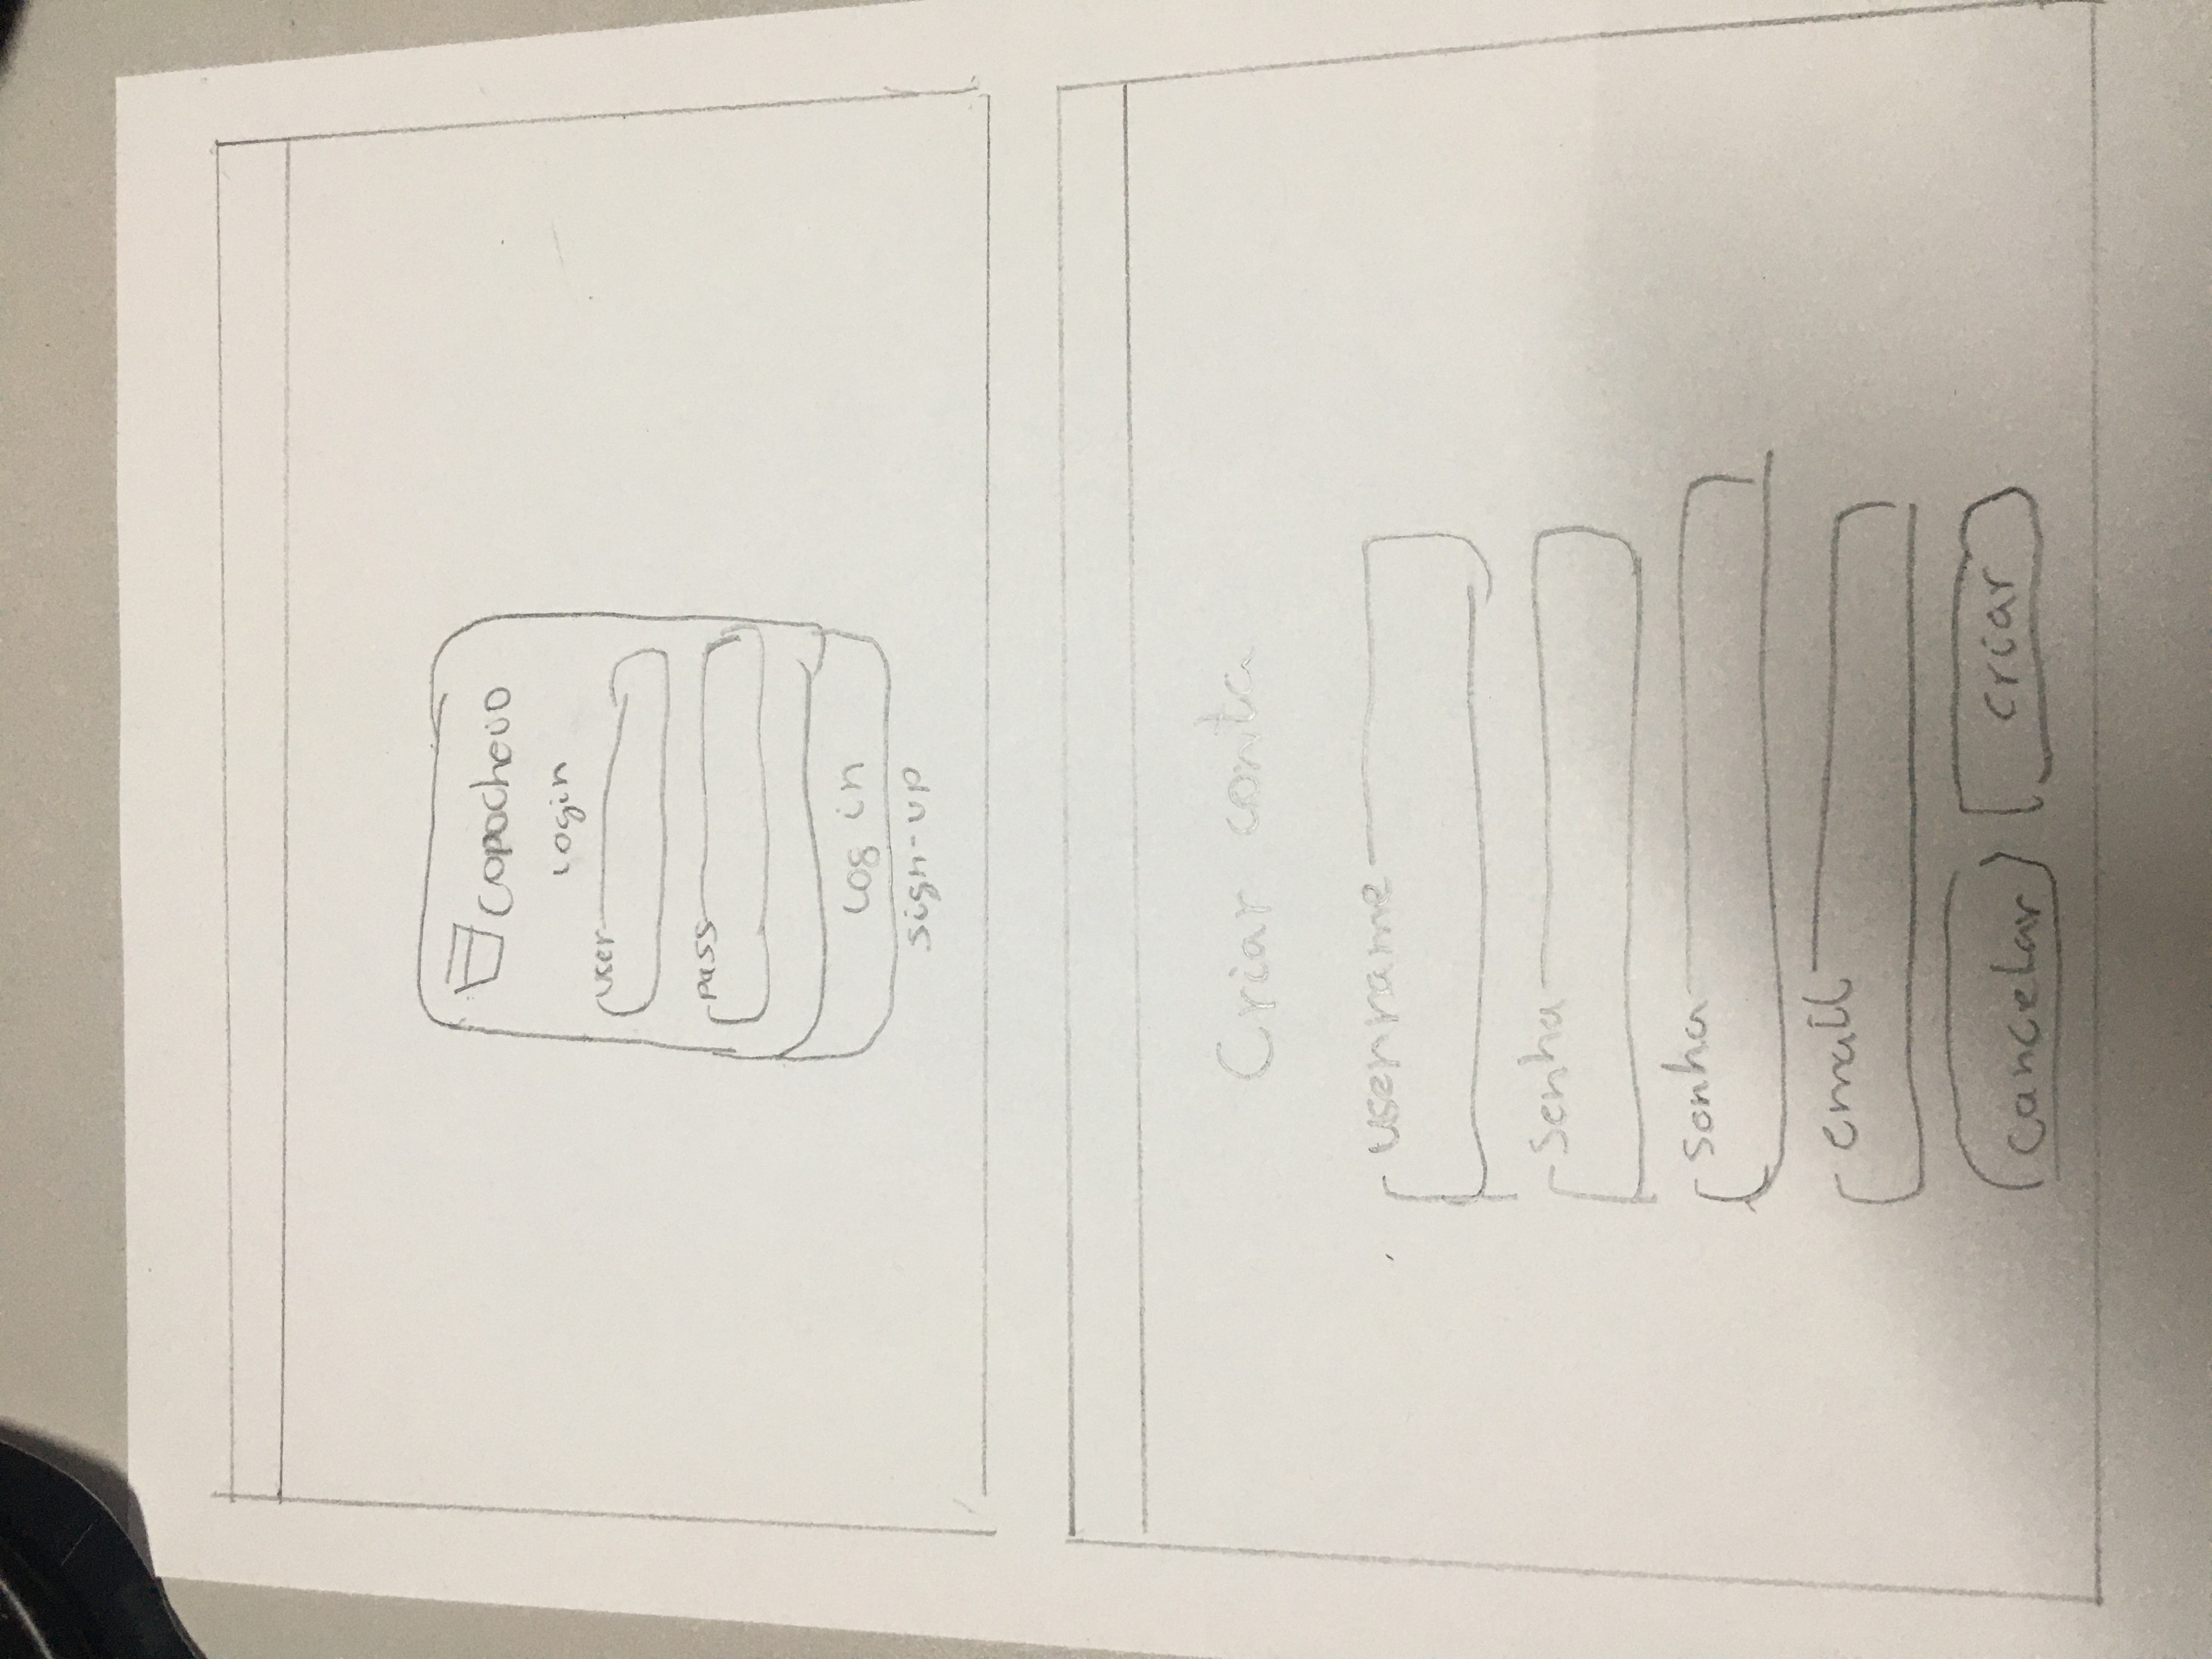 copocheio
Login
user
pass
Log in
sign-up
Criar conta
username
Senha
senha
email
cancelar
criar